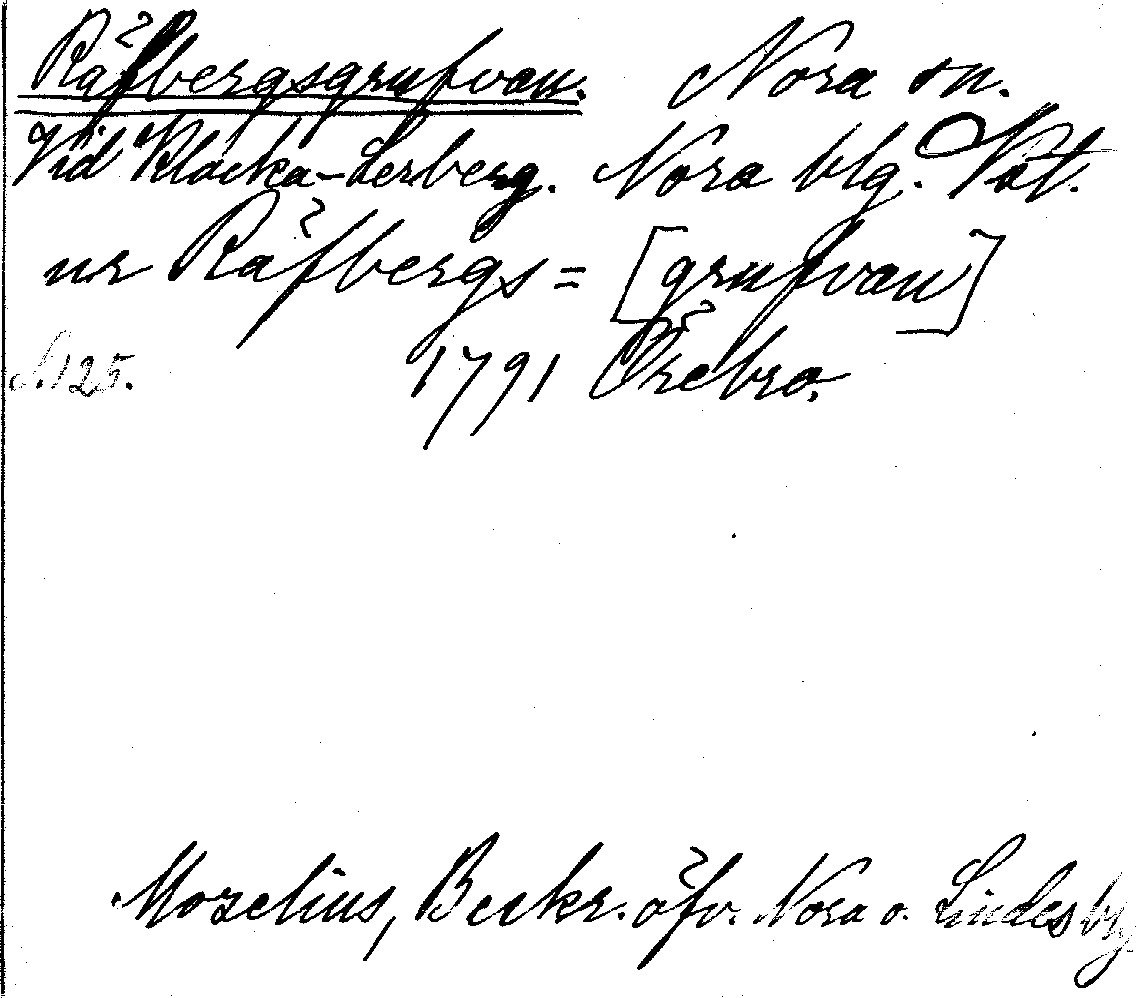 Räfbergsgrufvan. Nora sn.
Vid Klacka-Lerberg. Nora blg. Väst.
nr Räfbergs= [grufvan]
N. 125. 1791 Örebro.
Mozelius, Beskr. öfv. Nora o. Lindes blg